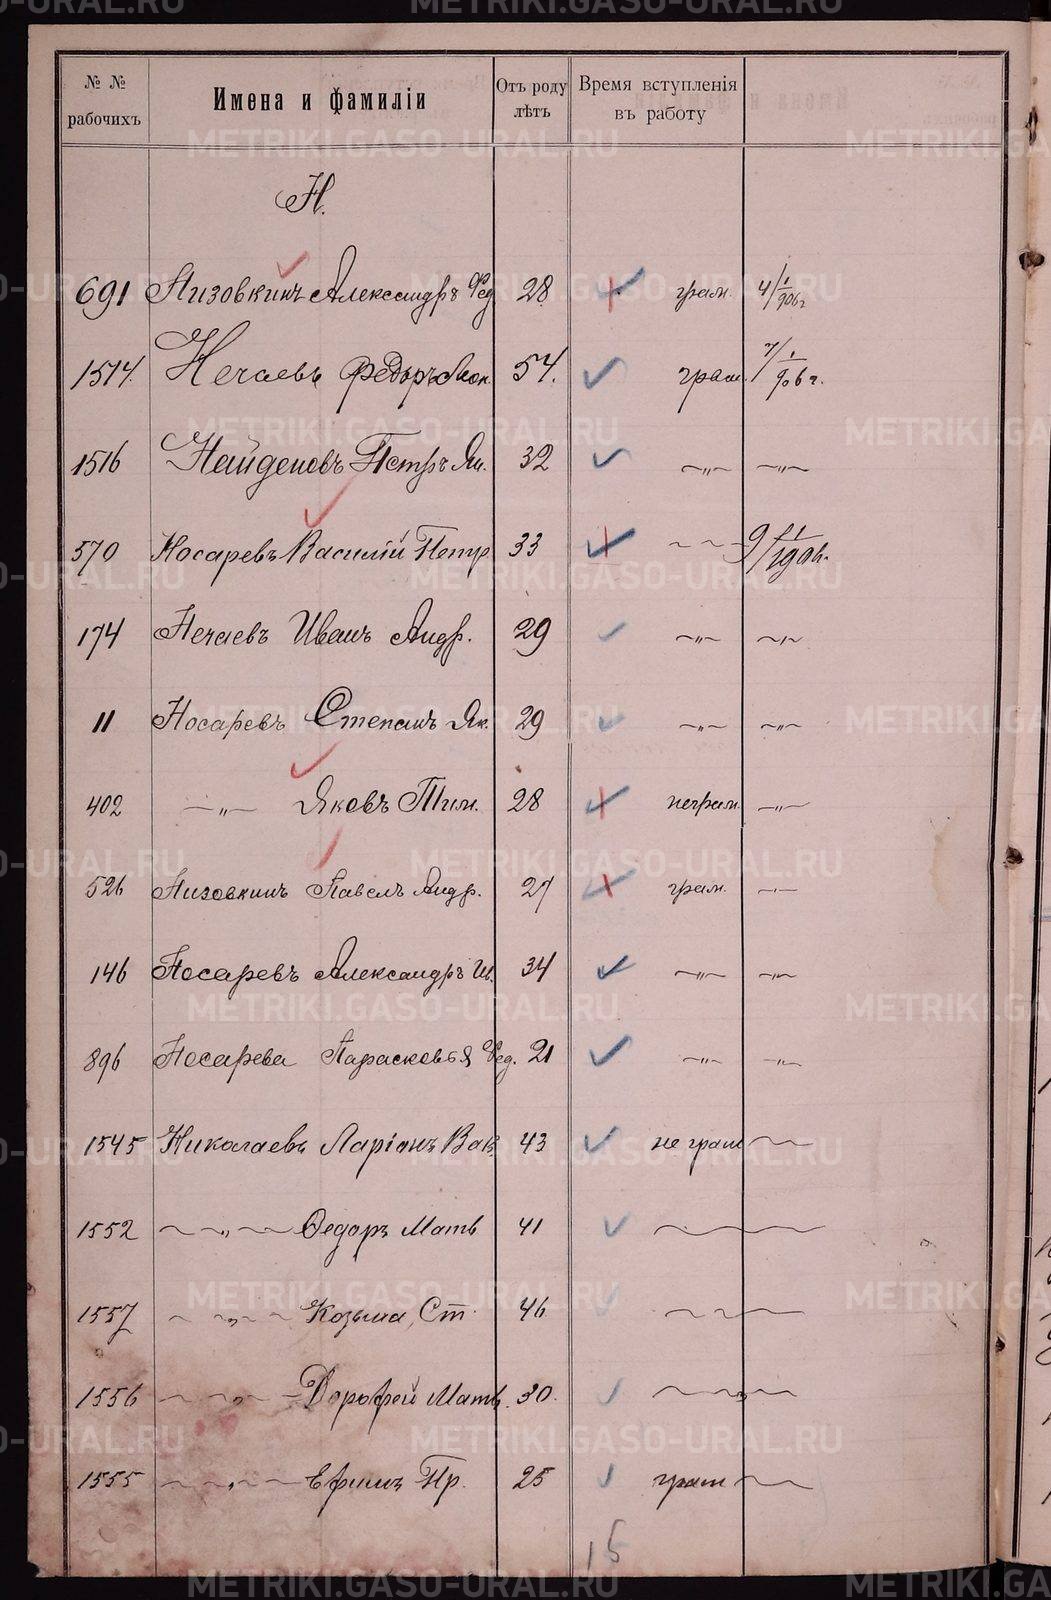 № № рабочихъ Имена и фамиліи Отъ роду лѣтъ Время вступленія въ работу
Н.
691 Низовкинъ Александръ Фед 28 грам. 4/1 906 г
1514 Нечаевъ Федоръ 54. грам. 7/1 906 г.
1516 Найденовъ Петръ Ян. 32 —„— —„—
570 Носаревъ Василій Петр 33 — — 9/1
174 Нечаевъ Иванъ Андр. 29 —„— —„—
11 Носаревъ Степанъ Як. 29 —„— —„—
402 —„— Яковъ Тим. 28 неграм. —„—
526 Низовкинъ Павелъ Андр. 27 грам. —„—
146 Носаревъ Александръ Ив. 34 —„— —„—
896 Носарева Парасковья Фед. 21 —„— —„—
1545 Николаевъ Ларіонъ Вак 43 не грам —
1552 —„— Ѳедоръ Матв 41 — —
1557 —„— Козьма Ст 46 — —
1556 —„— Дорофей Матв. 30. —„—
1555 —„— Ефимъ Пр. 25 грам —
15
METRIKI.GASO-URAL.RU